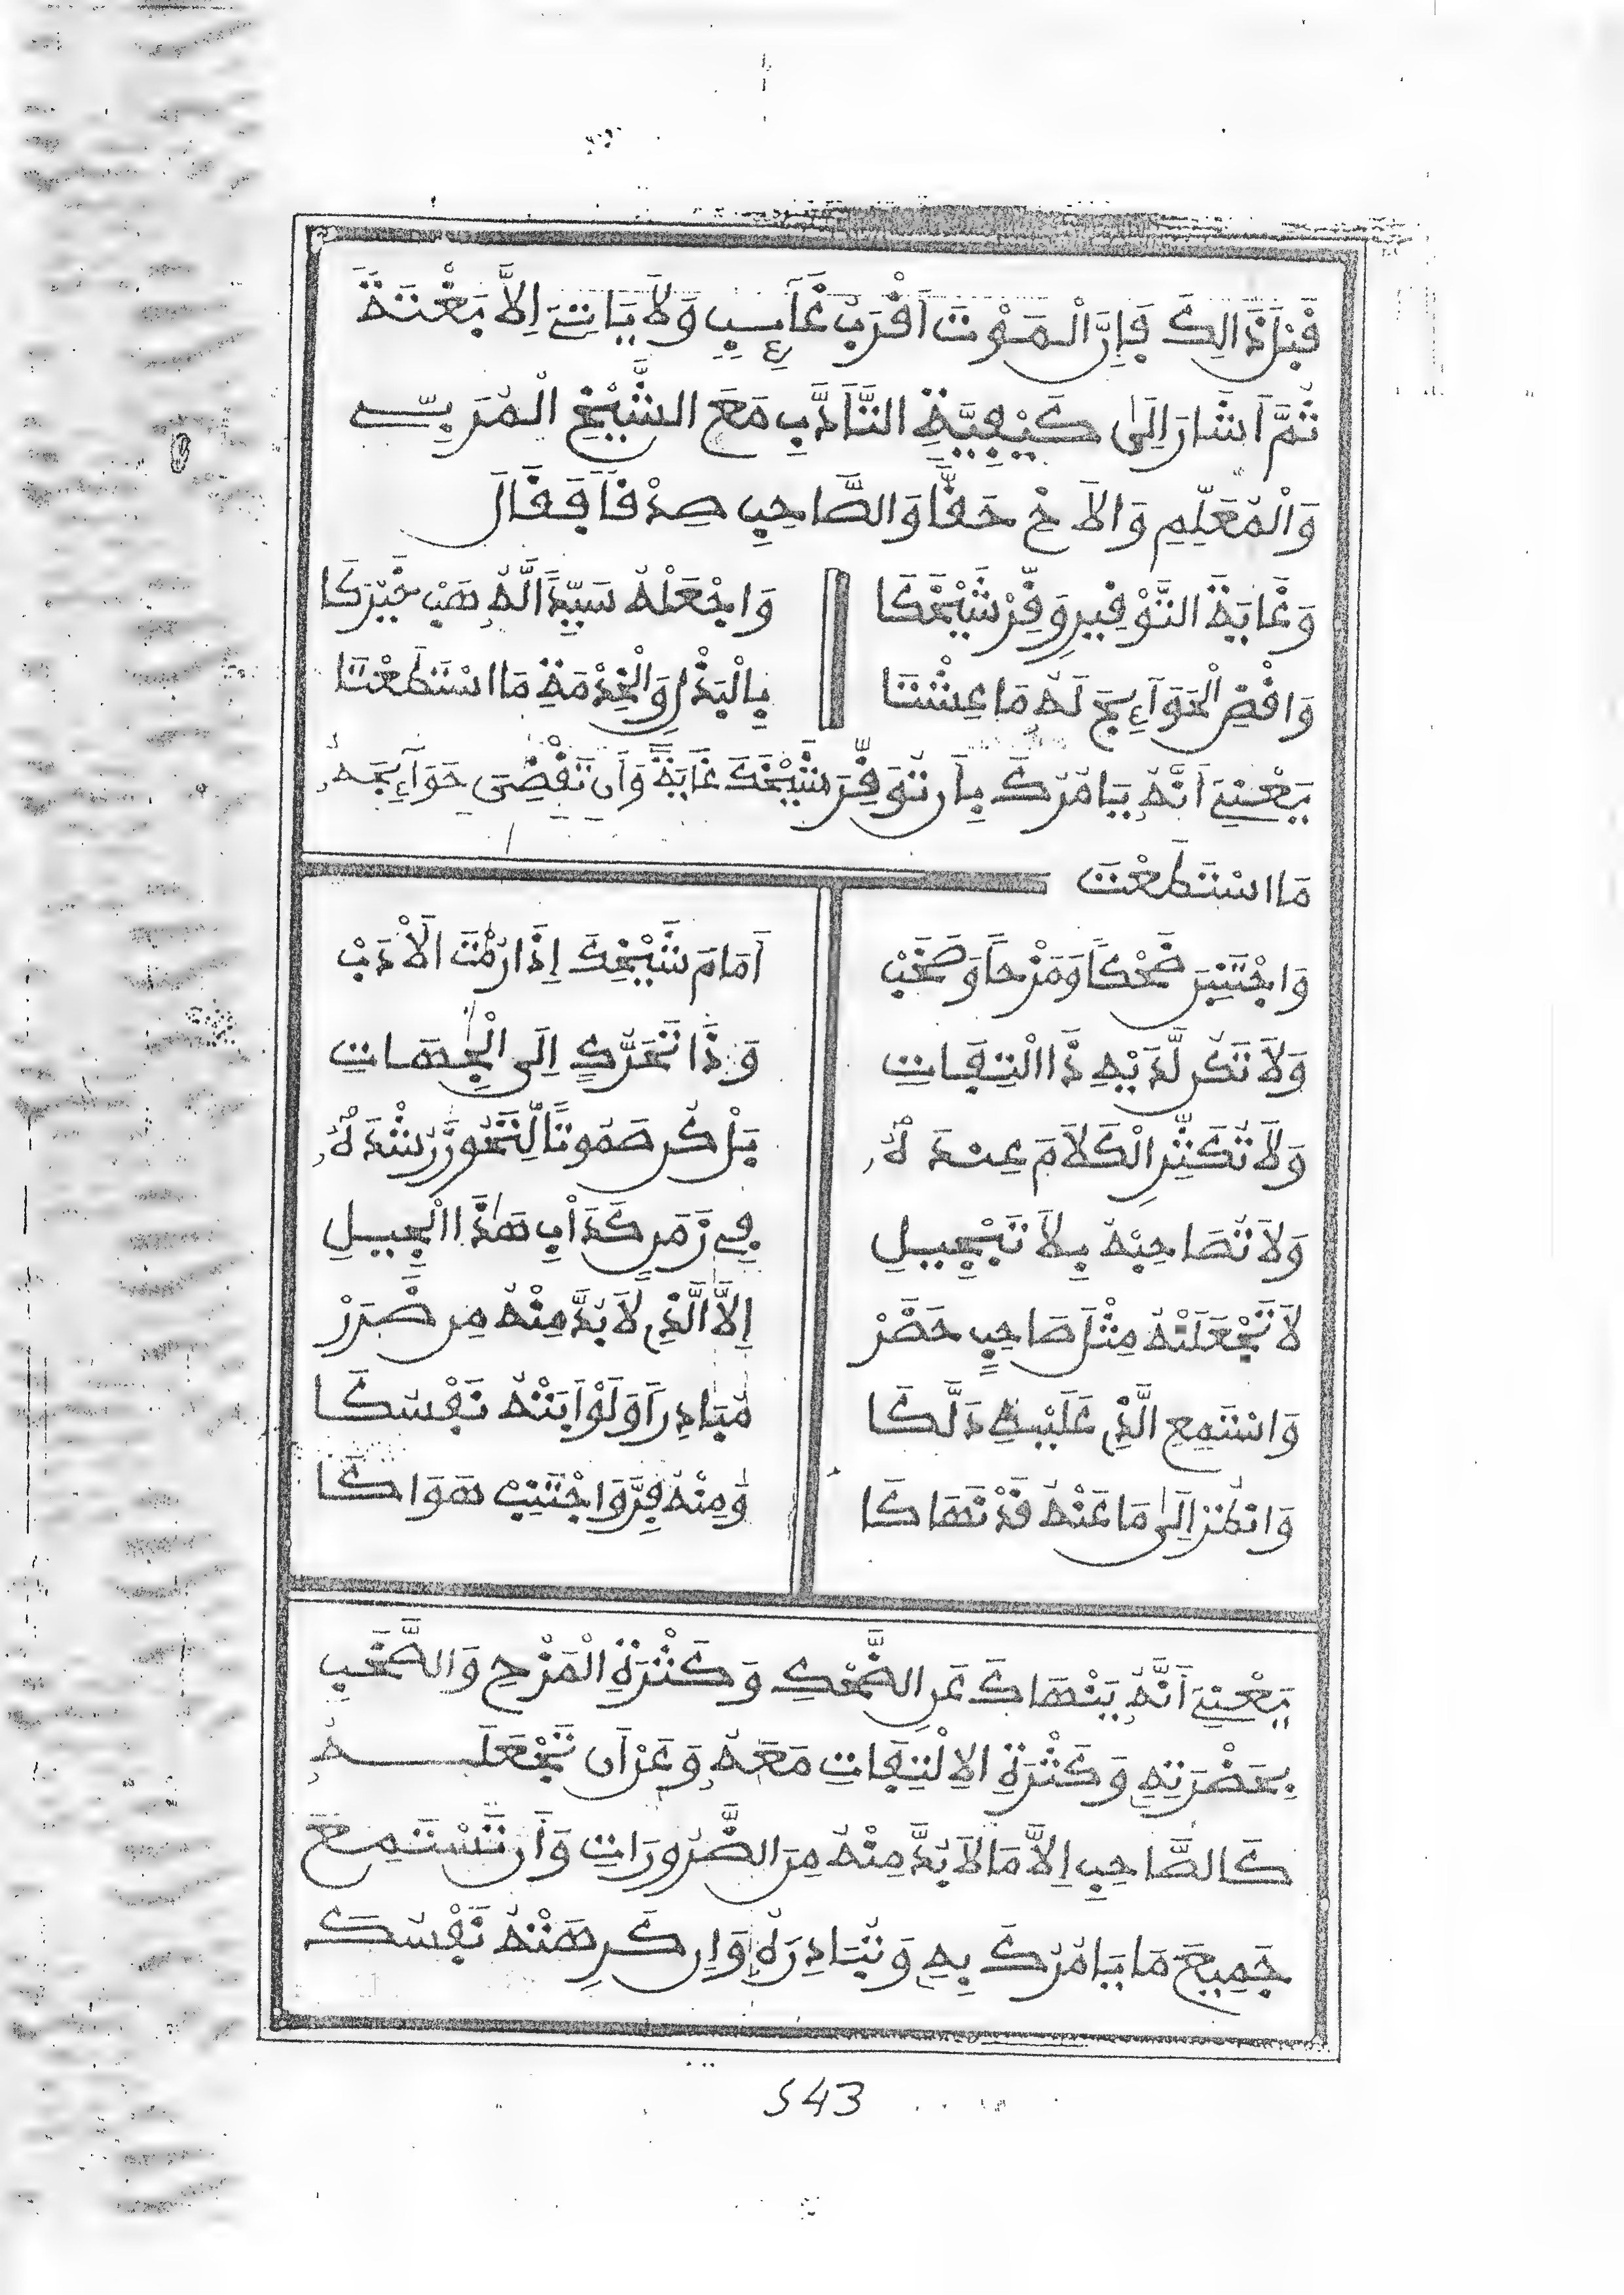 قَبْلَ ذَالِكَ فَإِنَّ الْمَوْتَ أَقْرَبُ غَآئِبٍ وَلَا يَاتِى إِلَّا بَغْتَةً
ثُمَّ أَشَارَ إِلَىٰ كَيْفِيَّةِ التَّأَدُّبِ مَعَ الشَّيْخِ الْمُرَبِّى
وَالْمُعَلِّمِ وَالْأَخِ حَقًّا وَالصَّاحِبِ صِدْقًا فَقَالَ
وَغَايَةَ التَّوْقِيرِ وَقِّرْ شَيْخَكَا وَاجْعَلْهُ سَيِّدًا لَّهُ هَبْ خَيْرَكَا
وَاقْضِ الْحَوَآئِجَ لَهُ مَا عِشْتَا بِالْبَذْلِ وَالْخِدْمَةِ مَا اسْتَطَعْتَا
يَعْنِى أَنَّهُ يَامُرُكَ بِأَن تُوَقِّرَ شَيْخَكَ غَايَةً وَأَن تَقْضِىَ حَوَآئِجَهُ
مَا اسْتَطَعْتَ
وَاجْتَنِبَن ضَحْكًا وَمَزْحًا وَصَخَبْ أَمَامَ شَيْخِكَ إِذَا رُمْتَ الْأَدَبْ
وَلَا تَكُن لَّدَيْهِ ذَا الْتِفَاتِ وَذَا تَحَرُّكٍ إِلَى الْجِهَاتِ
وَلَا تُكَثِّرِ الْكَلَامَ عِندَ لَهُ بَلْ كُن صَمُوتًا لِّتَحُوزَ رُشْدَ لَهُ
وَلَا تُصَاحِبْهُ بِلَا تَبْجِيلِ فِى زَمَنٍ كَدَأْبِ هَٰذَا الْجِيلِ
لَا تَجْعَلَنْهُ مِثْلَ صَاحِبٍ حَضَرْ إِلَّا الَّذِى لَا بُدَّ مِنْهُ مِن ضَرَرْ
وَاسْتَمِعِ الَّذِى عَلَيْهِ دَلَّكَا مُبَادِرًا وَلَوْ أَبَتْهُ نَفْسُكَا
وَانظُرْ إِلَىٰ مَا عَنْهُ قَدْ نَهَاكَا وَمِنْهُ فِرَّ وَاجْتَنِبْ هَوَاكَا
يَعْنِى أَنَّهُ يَنْهَاكَ عَنِ الضَّحْكِ وَكَثْرَةِ الْمَزْحِ وَالصَّخَبِ
بِحَضْرَتِهِ وَكَثْرَةِ الِالْتِفَاتِ مَعَهُ وَعَنْ أَن تَجْعَلَهُ
كَالصَّاحِبِ إِلَّا مَا لَا بُدَّ مِنْهُ مِنَ الضَّرُورَاتِ وَأَن تَسْتَمِعَ
جَمِيعَ مَا يَامُرُكَ بِهِ وَتُبَادِرَهُ وَإِن كَرِهَتْهُ نَفْسُكَ
543